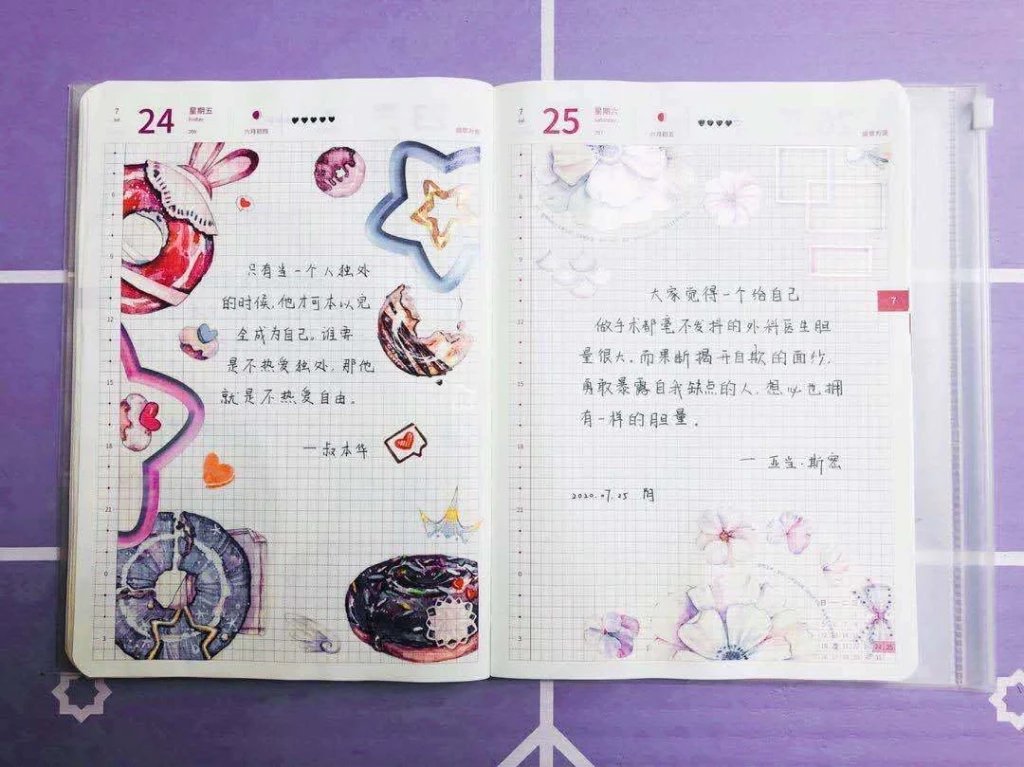 7
24
星期五
六月初四
只有当一个人独处
的时候,他才可本以完
全成为自己。谁要
是不热爱独处,那他
就是不热爱自由。
—叔本华
7
25
星期六
六月初五
大家觉得一个给自己
做手术都毫不发抖的外科医生胆
量很大。而果断揭开自欺的面纱,
勇敢暴露自我缺点的人,想必也拥
有一样的胆量。
— 亚当·斯密
2020.07.25 阴
7